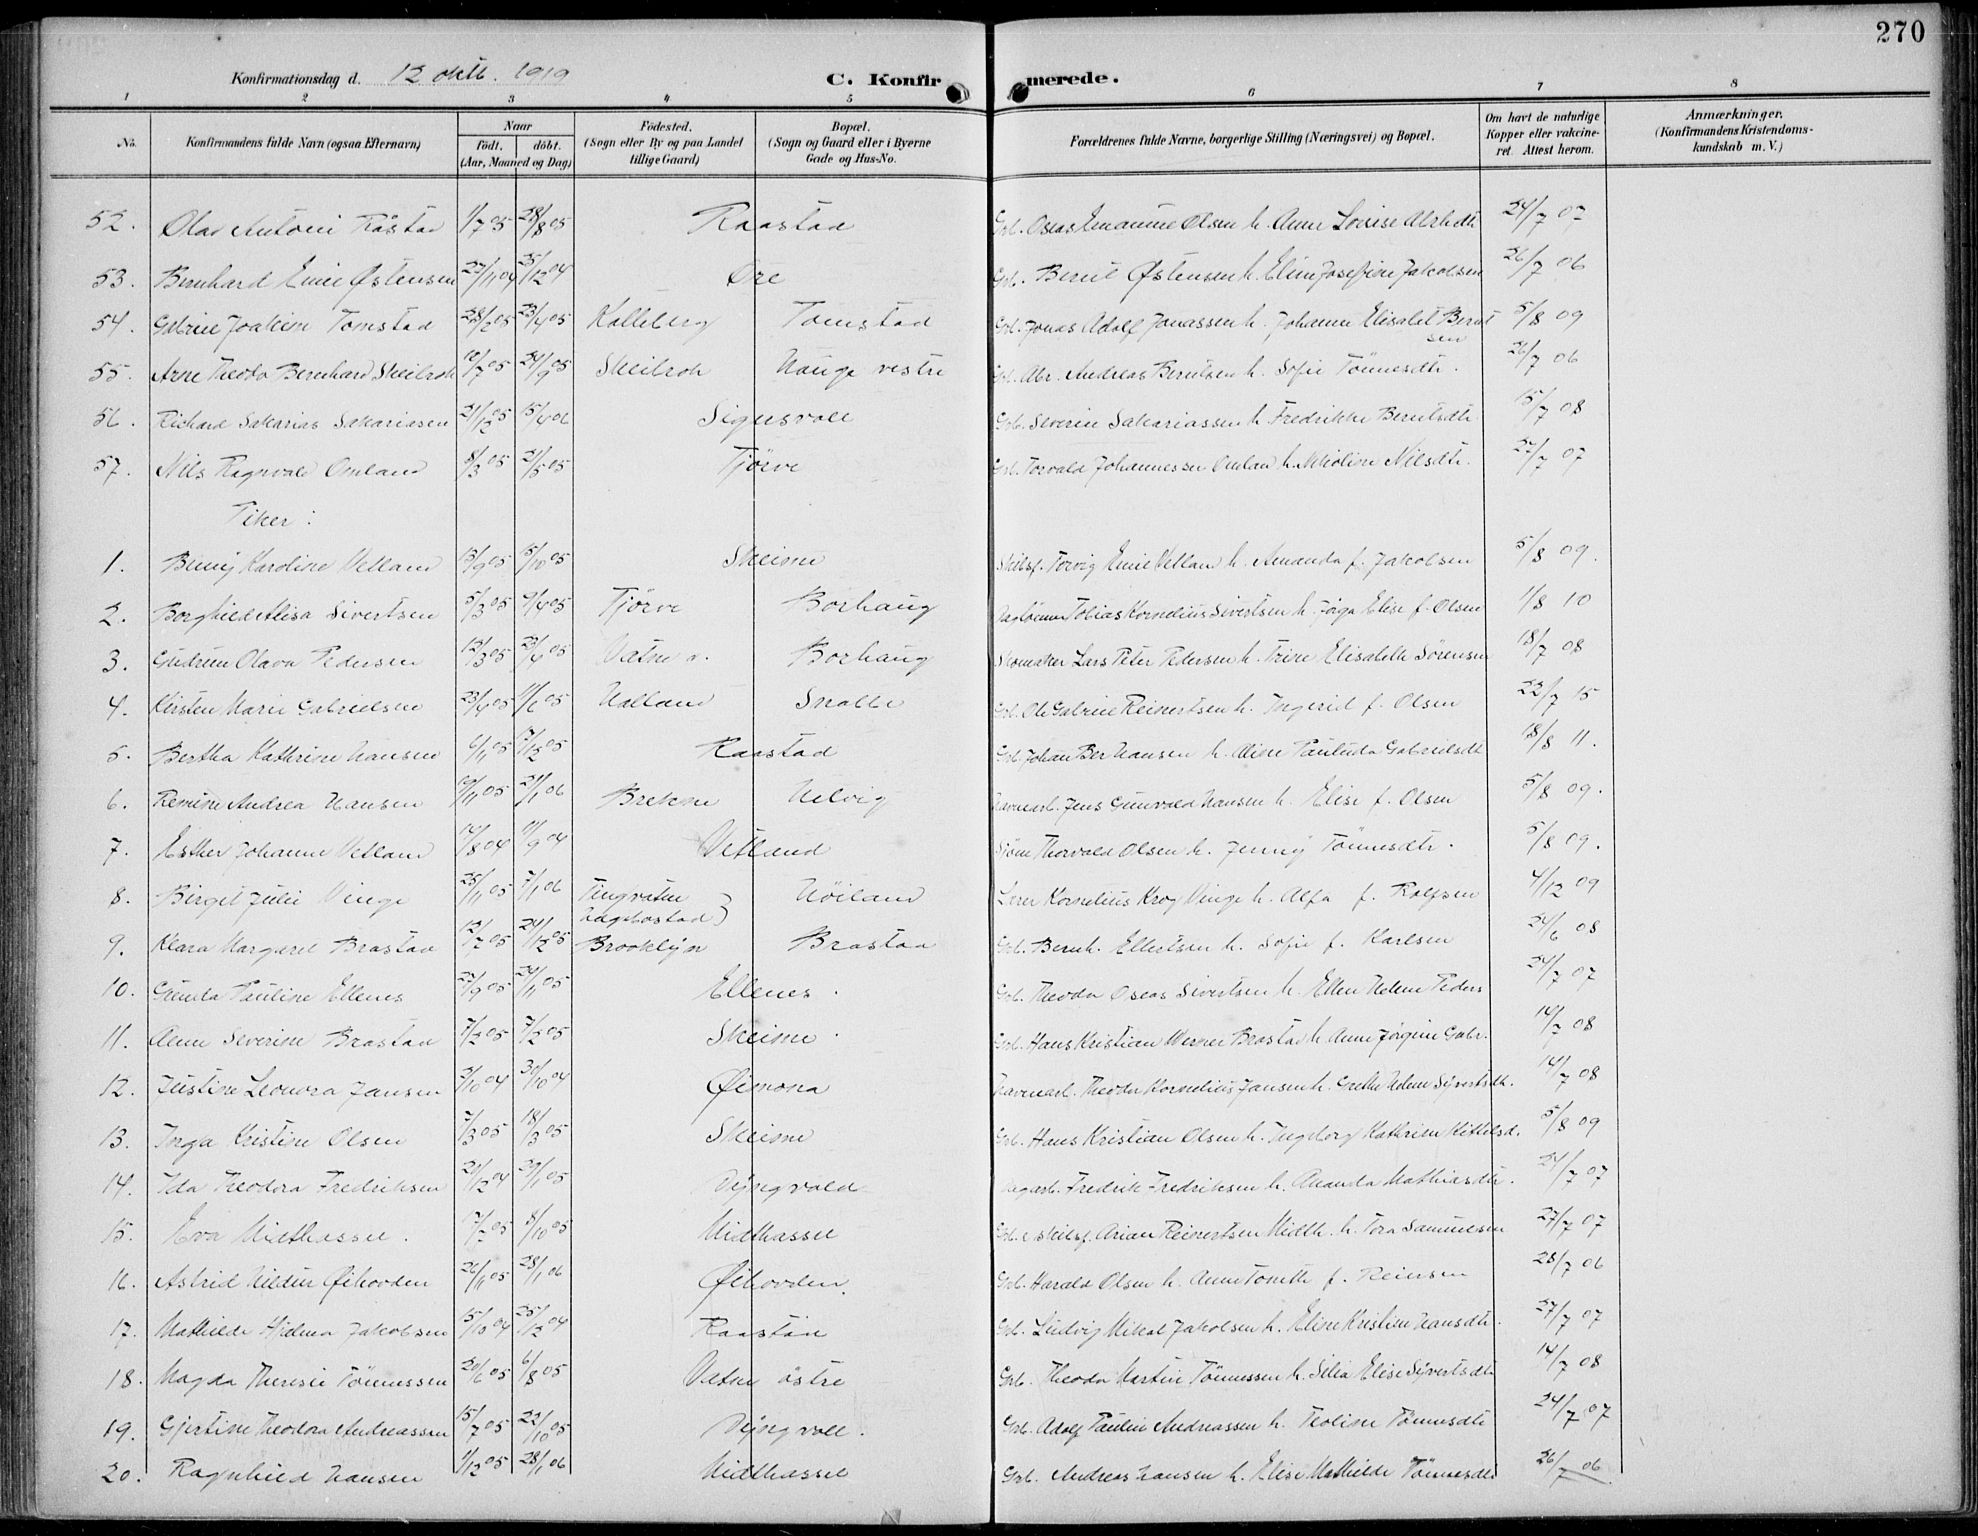 270
Konfirmationsdag d. 12 oktb. 1919 C. Konfirmerede.
1 2 3 4 5 6 7 8
No. Konfirmandens fulde Navn (ogsaa Efternavn) Naar født. døbt. (Aar, Maaned og Dag) Fødested. (Sogn eller By og paa Landet tillige Gaard) Bopæl. (Sogn og Gaard eller i Byerne Gade og Hus-No. Forældrenes fulde Navne, borgerlige Stilling (Næringsvei) og Bopæl. Om havt de naturlige Kopper eller vakcineret. Attest herom. Anmærkninger. (Konfirmandens Kristendomskundskab m. V.)
52. Olav Antoni Råstad 1/7 05 28/8 05 Raastad Grb. Oseas Emanuel Olsen h. Anne Lovise Abrhdtr 24/7 07
53. Bernhard Emil Østensen 27/11 04 25/12 04 Øre Grb. Berul Østensen h. Eline Josefine Jakobsen 26/7 06
54. Gabriel Joakim Tomstad 28/2 05 23/4 05 Kalleberg Tomstad Grb. Jonas Adolf Jonassen h. Johanne Elisabet Berntsen 5/8 09
55. Arne Theodor Bernhard Skeibrok 10/7 05 24/9 05 Skeibrok Hauge vestre Grb. Abr. Andreas Berntsen h. Sofie Tönnesdtr. 26/7 06
56. Richard Sakarias Sakariasen 21/12 05 15/4 06 Sigersvoll Grb. Severin Sakariassen h. Fredrikke Berntsdtr 15/7 08
57. Nils Ragnvald Omland 8/3 05 21/5 05 Tjörve Grb. Torvald Johannessen Omland h. Nikoline Nilsdtr. 27/7 07
Piker:
1. Benny Karoline Vetland 13/9 05 15/10 05 Skeime Skibsf. Torvig Emil Vetland h. Amanda f. Jakobsen 5/8 09.
2. Borghild Alisa Sivertsen 5/3 05 9/4 05 Tjörve Borhaug Dagl. Tobias Kornelius Sivertsen h. Inga Elise f. Olsen 1/8 10
3. Gudrun Olava Pedersen 12/3 05 23/4 05 Vatne ö. Borhaug Skomaker Lars Peter Pedersen h. Trine Elisabeth Sörensen 18/7 08
4. Kirsten Marie Gabrielsen 23/4 05 11/6 05 Hälland Snalle Grb. Ole Gabriel Reinertsen h. Ingerid f. Olsen 22/7 15
5. Bertha Kathrine Hansen 6/11 05 7/12 05 Raastad Grb. Johan Ber Hansen h. Aline Paulida Gabrielsdtr 18/8 11.
6. Remine Andrea Hansen 9/11 05 21/1 06 Brekne Helvig Havnearb. Jens Gunvald Hansen h. Elise f. Olsen 5/8 09.
7. Esther Johanne Vetland 14/8 04 11/9 04 Vetland Sjöm. Thorvald Olsen h. Jenny Tönnesdtr. 5/8 09.
8. Birgit Julie Vinge 25/11 05 7/1 06 Tingvatn Hægebostad Höiland Lærer Kornelius Krog Vinge h. Alfa f. Rolfsen 4/12 09
9. Klara Margaret Brastad 13/7 05 24/12 05 Brooklyn Brastad Grb. Bernh. Ellertsen h. Sofie f. Karlsen 24/6 08
10. Gunda Pauline Ellenes 27/9 05 24/11 05 Ellenes. Grb. Theodor Oseas Sivertsen h. Ellen Helene Peders 24/7 07
11. Anne Severine Brastad 7/2 05 7/2 05 Skeime. Grb. Hans Kristian Werner Brastad h. Anne Jörgine Gabr. 14/7 08
12. Justine Leonora Jansen 3/10 04 30/10 04 Øimona Havnearb. Theodor Kornelius Jansen h. Grethe Helene Syvertsdtr. 14/7 08
13. Inga Kristine Olsen 7/3 05 18/3 05 Skeime Grb. Hans Kristian Olsen h. Ingeborg Kathrine Kittelsd. 5/8 09
14. Ida Theodora Fredriksen 21/12 04 29/1 05 Dyngvold Fredrik Fredriksen h. Ananda Mathiasdtr. 24/7 07
15. Eva Midthassel. 7/7 05 8/10 05 Midthassel Grb. & skibsf. Arian Reinertsen Midth. h. Tora Samuelsen 27/7 07
16. Astrid Hildur Øihovden 26/11 05 28/1 06 Øihovden. Grb. Harald Olsen h. Anne Tomth f. Reiersen 28/7 06
17. Mathilde Hjelma Jakobsen 15/10 04 25/12 04 Raastad Grb. Ludvig Mikal Jakobsen h. Eline Kristine Hansdtr. 27/7 07
18. Magda Theresie Tönnessen 20/6 05 6/8 05 Vatne östre Grb. Theodor Martin Tönnessen h. Silia Elise Syvertsdtr 14/7 08
19. Gjertine Theodora Andreassen 15/7 05 22/10 05 Dyngvoll. Grb. Adolf Paulin Andreassen h. Teoline Tönnesdtr 24/7 07
20. Ragnhild Hansen 1/12 05 28/1 06 Midthassel Grb. Andreas Hansen h. Elise Mathilde Tönnesdtr 26/7 06.